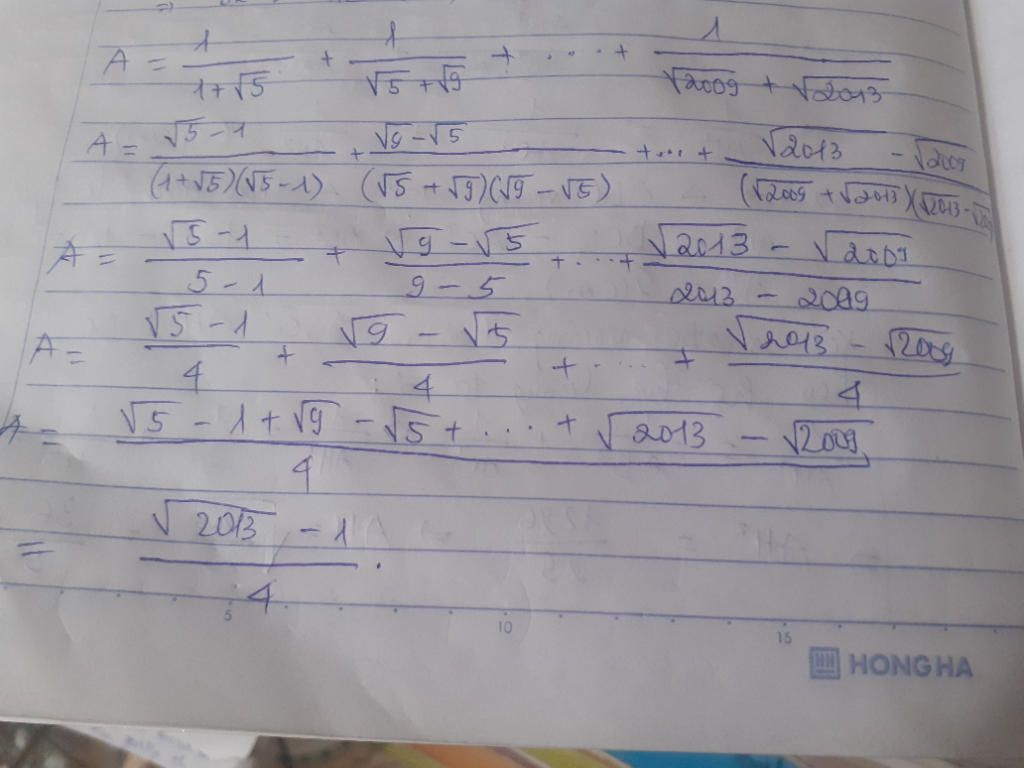 A = 1/(1+√5) + 1/(√5 + √9) + .... + 1/(√2009 + √2013)
A = (√5 - 1)/((1+√5)(√5 - 1)) + (√9 - √5)/((√5 + √9)(√9 - √5)) + ... + (√2013 - √2009)/((√2009 + √2013)(√2013 - √2009
A = (√5 - 1)/(5 - 1) + (√9 - √5)/(9 - 5) + ... + (√2013 - √2009)/(2013 - 2009)
A = (√5 - 1)/4 + (√9 - √5)/4 + .... + (√2013 - √2009)/4
A = (√5 - 1 + √9 - √5 + ... + √2013 - √2009)/4
= (√2013 - 1)/4 .
5 10 15
HONG HA